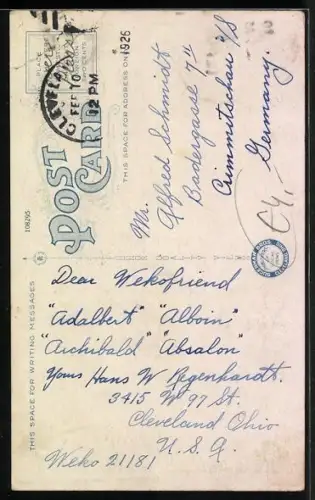 CLEVELA
FEB 10
12 PM
1926
PLACE
POST
CARD
THIS SPACE FOR ADDRESS ONLY
108295
Mr.
Alfred Schmidt
Badergasse 7II
Crimmitschau i/S
Germany.
THIS SPACE FOR WRITING MESSAGES
Dear Wekofriend
"Adalbert" "Alboin"
"Archibald" "Absalon"
Yours Hans W Regenhardt.
3415 W 97 St.
Cleveland Ohio
U. S. A.
Weko 21181